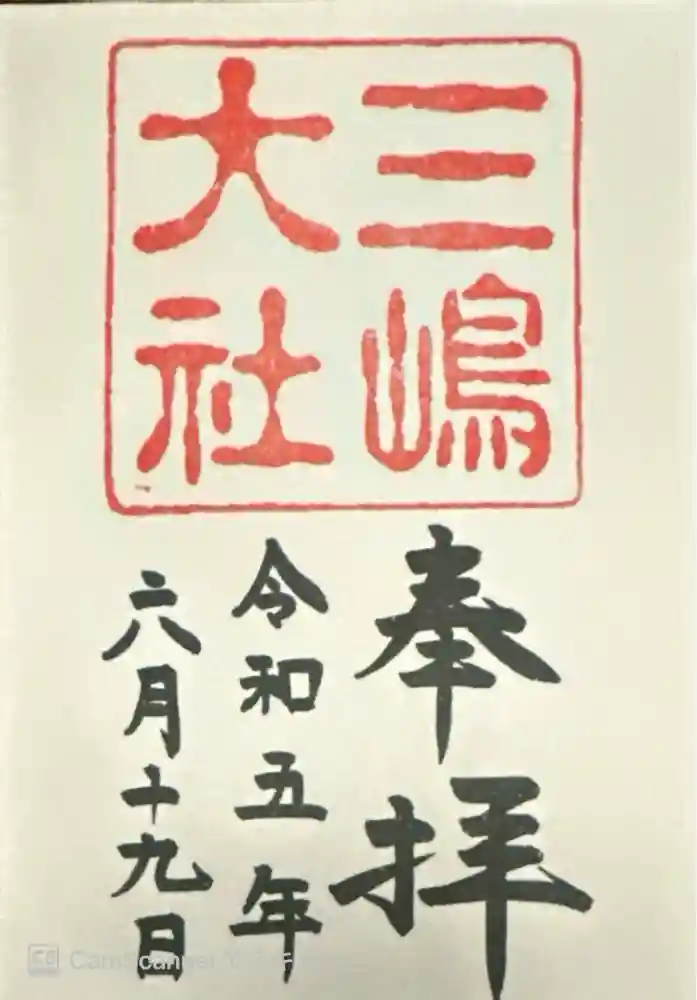 三嶋
大社
奉拝
令和五年
六月十九日
CamScanner